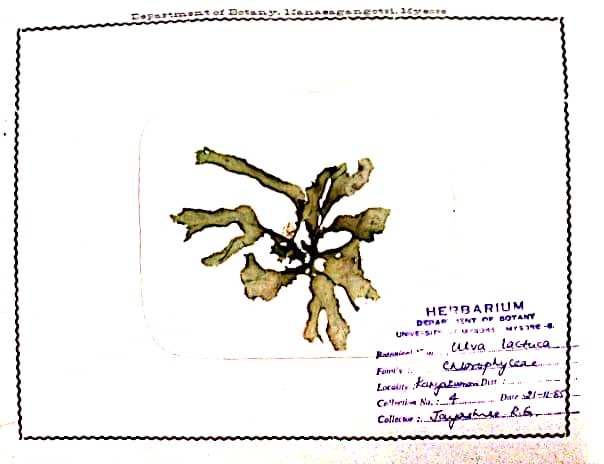 Department of Botany, Manasagangotri, Mysore
HERBARIUM
DEPARTMENT OF BOTANY
UNIVERSITY OF MYSORE MYSORE -6.
Botanical Ulva lactuca
Family : Chlorophyceae
Locality : Dist :
Collection No. : 4 Date : 21-11-85
Collector : Jayashree R.G.